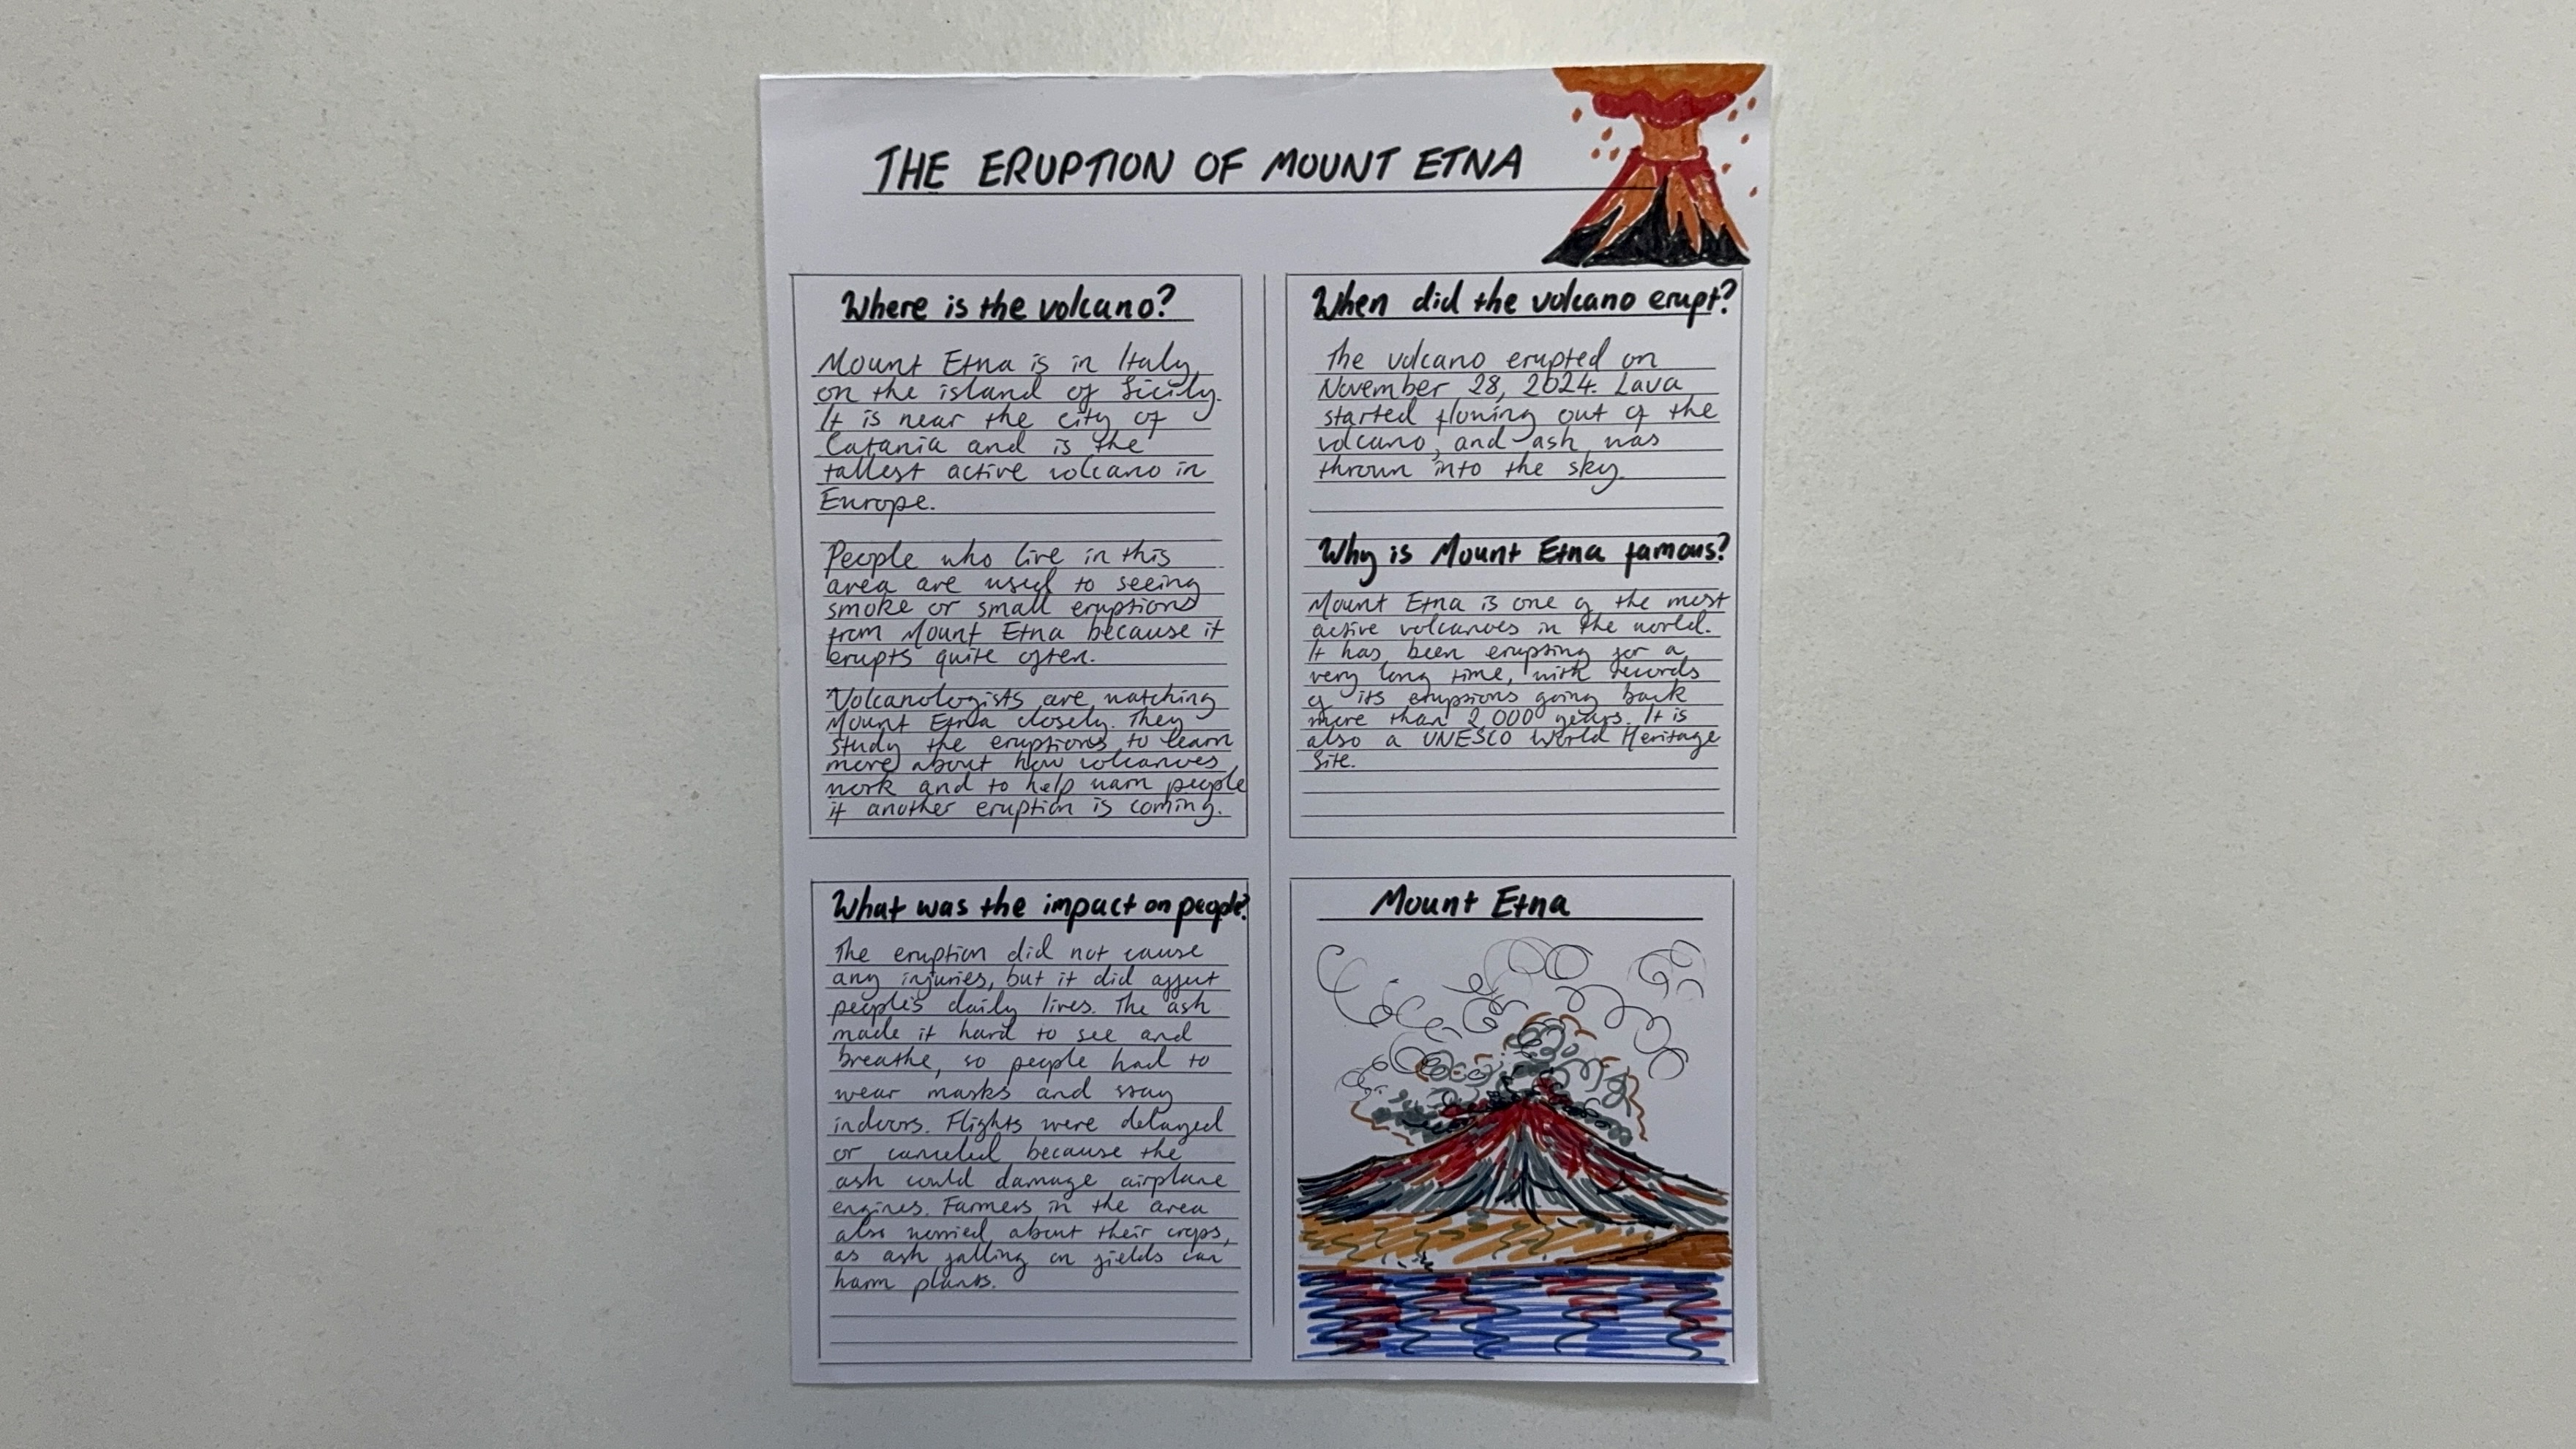 THE ERUPTION OF MOUNT ETNA
Where is the volcano?
Mount Etna is in Italy,
on the island of Sicily.
It is near the city of
Catania and is the
tallest active volcano in
Europe.
People who live in this
area are used to seeing
smoke or small eruptions
from Mount Etna because it
erupts quite often.
Volcanologists are watching
Mount Etna closely. They
study the eruptions to learn
more about how volcanoes
work and to help warn people
if another eruption is coming.
When did the volcano erupt?
The volcano erupted on
November 28, 2024. Lava
started flowing out of the
volcano, and ash was
thrown into the sky.
Why is Mount Etna famous?
Mount Etna is one of the most
active volcanoes in the world.
It has been erupting for a
very long time, with records
of its eruptions going back
more than 2,000 years. It is
also a UNESCO World Heritage
Site.
What was the impact on people?
The eruption did not cause
any injuries, but it did affect
people's daily lives. The ash
made it hard to see and
breathe, so people had to
wear masks and stay
indoors. Flights were delayed
or canceled because the
ash could damage airplane
engines. Farmers in the area
also worried about their crops,
as ash falling on fields can
harm plants.
Mount Etna